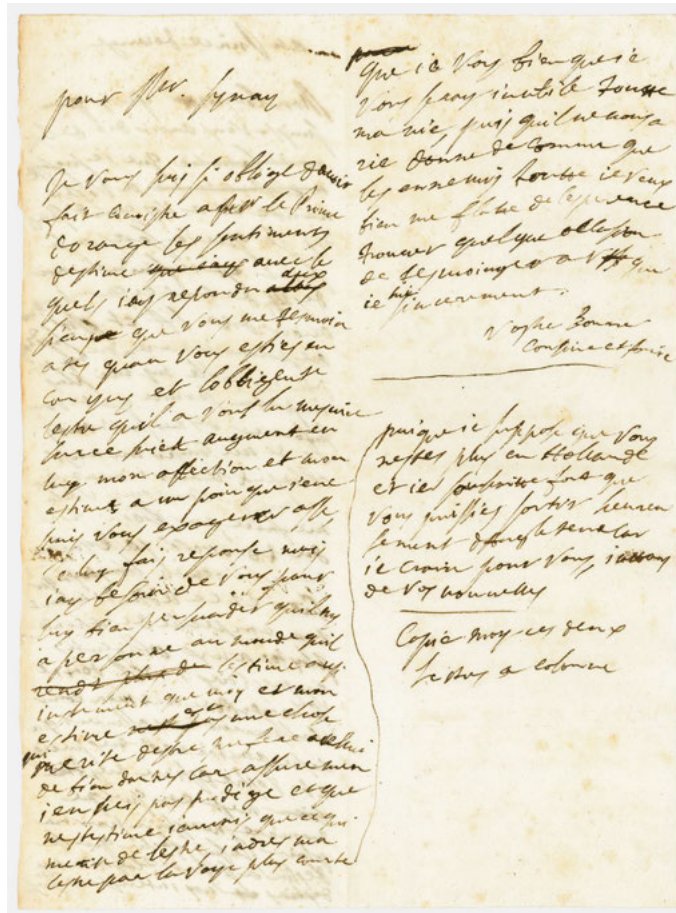 pour Mr.
Je vous suis si obligé davoir
fait connoistre a Mr le Prince
dorange les sentiments
destime avec le
quels iay repondu
que vous me tesmoin
ates quan vous esties en
et lobligente
lestre quil a voulu mescrire
sur ce augment en
mon affection et mon
estime a un poin que iene
puis vous exagerer asse
ie luy fais reponse mais
iay besoin de vous pour
luy bien persuader quil ny
a personne au monde quil
lestime aussi
iustement que moy et mon
estime une chose
qui merite destre
de bien car assurement
ien suis pas prodige et que
nestime iamais que ce qui
merite de lestre iadres ma
lestre par la voye plus courte
que ie vois bien que ie
vous seray inutile toutte
ma vie, puis quil ne nous a
rie donne de commun que
les ennemis toutte ie veux
bien me flate de lesperence
trouver quelque occasion
de tesmoinger a que
ie suis sincerement.
Vostre Bonne
Cousine et
puisque ie suppose que vous
nestes plus en Hollande
et ie souhaitte fort que
vous puissies sortir heureu
sement dangleterre car
ie crain pour vous,
de vos nouvelles
Copie moy ces deux
lestres a colonne